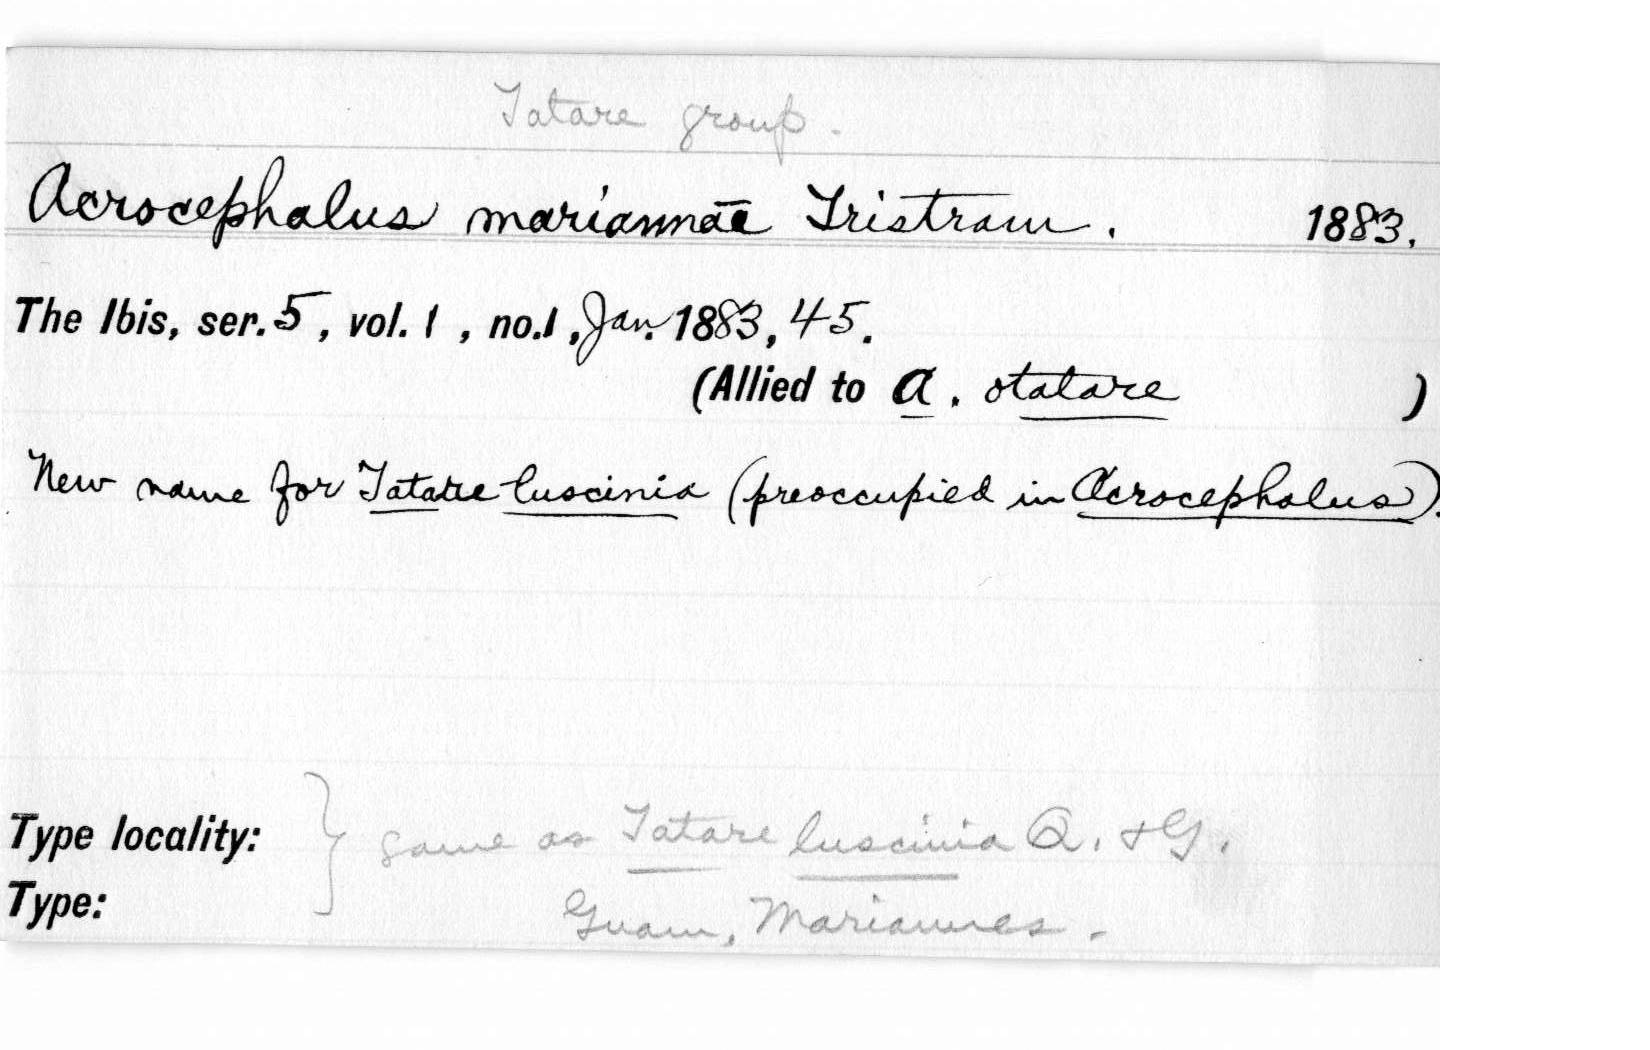 Tatare group.
Acrocephalus mariannae Tristram. 1883.
The Ibis, ser. 5, vol. 1, no. 1, Jan. 1883, 45.
(Allied to A. otatare )
New name for Tatare luscinia (preoccupied in Acrocephalus).
Type locality: } same as Tatare luscinia Q. + G.
Type: Guam, Mariannes.